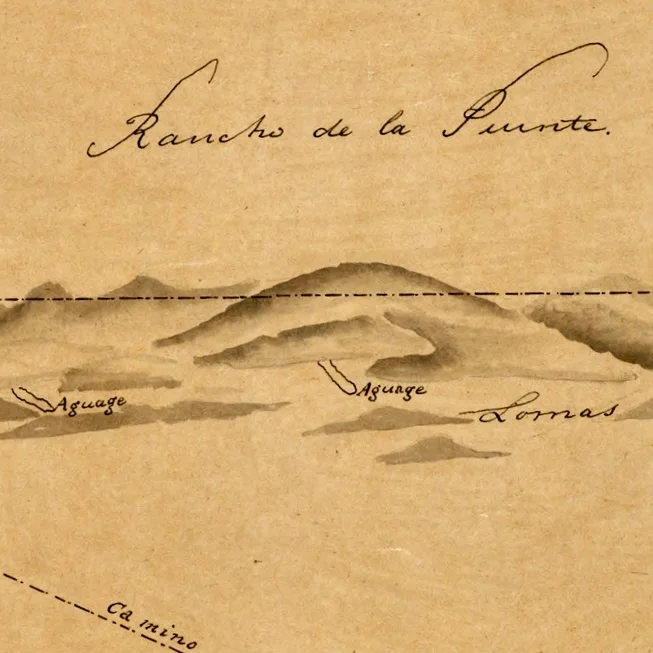 Rancho de la Puente.
Aguage
Aguage
Lomas
Camino